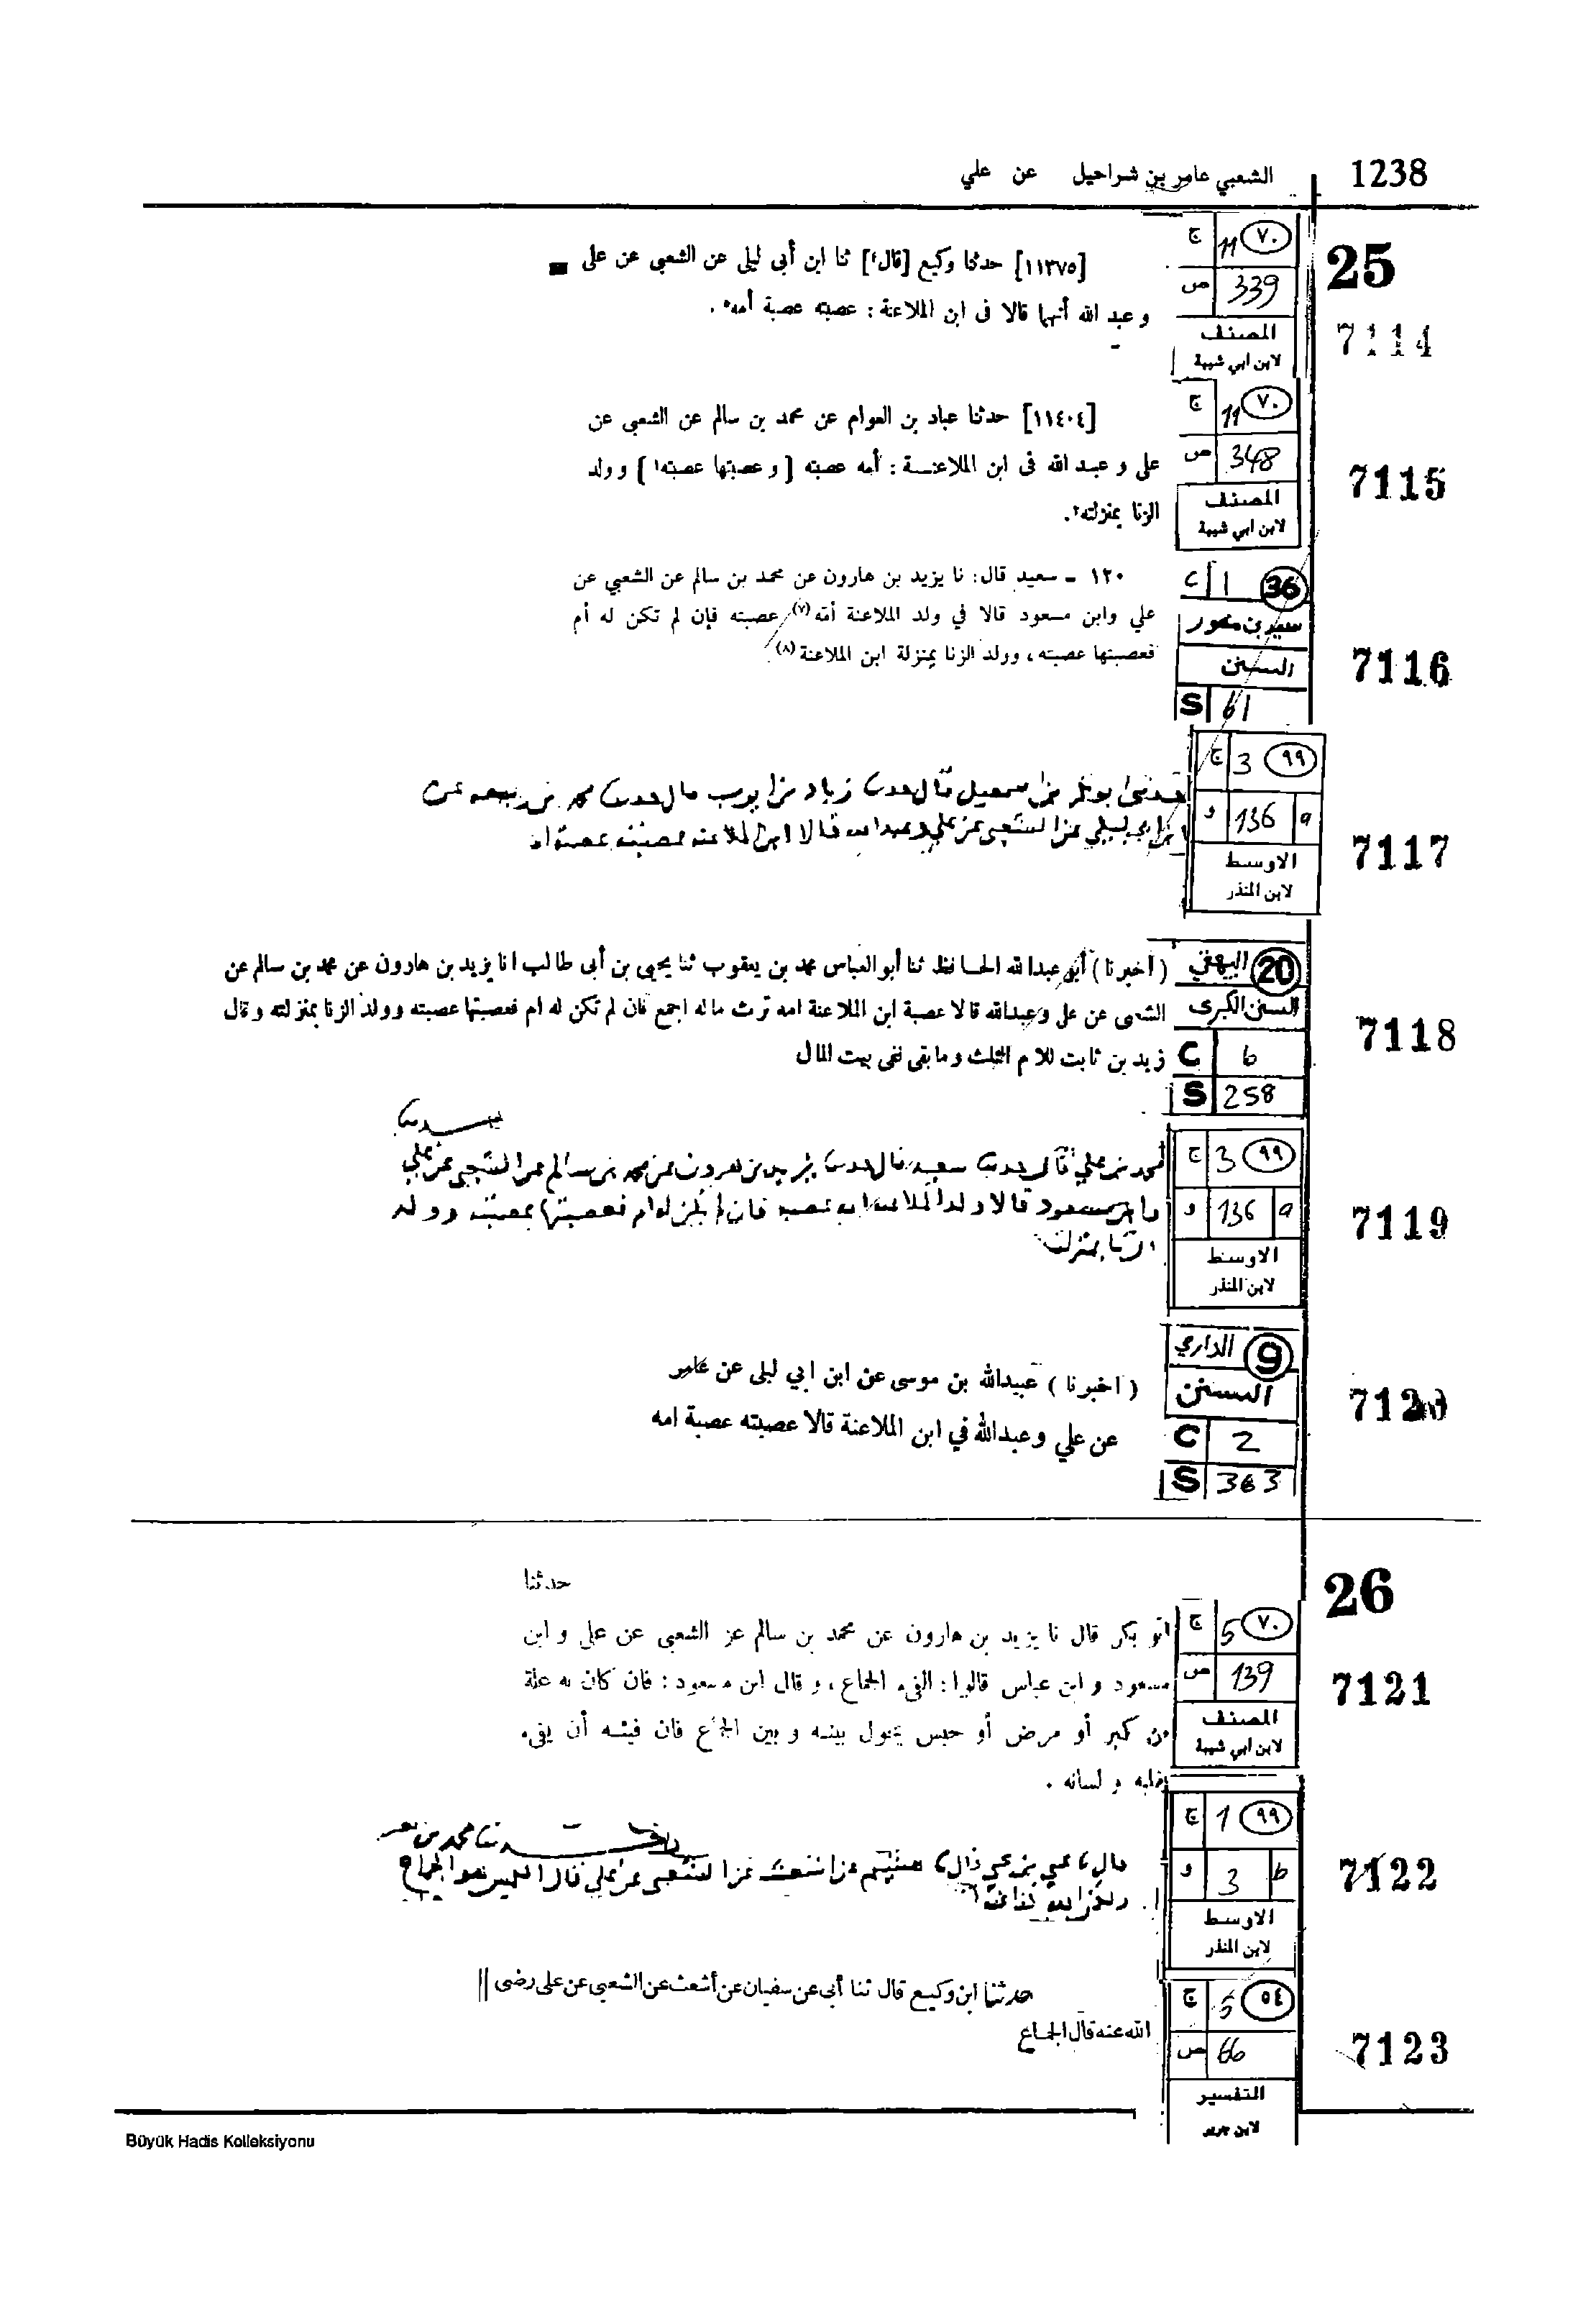 1238
الشعبي عامر بن شراحيل عن علي
25
7114
ج 11 ٧٠
ص 339
المصنف
لابن ابي شيبة
[١١٣٧٥] حدثنا وكيع [قال] ثنا ابن أبى ليلى عن الشعبى عن على
و عبد الله أنهما قالا فى ابن الملاعنة : عصبته عصبة أمه .
7115
ج 11 ٧٠
ص 348
المصنف
لابن ابي شيبة
[١١٤٠٤] حدثنا عباد بن العوام عن محمد بن سالم عن الشعبى عن
على و عبد الله فى ابن الملاعنـة : أمه عصبته [ و عصبتها عصبته¹ ] و ولد
الزنا بمنزلته² .
7116
C 1 36
سعيد بن منصور
السنن
S 61
١٢٠ - سعيد قال: نا يزيد بن هارون عن محمد بن سالم عن الشعبي عن
علي وابن مسعود قالا في ولد الملاعنة أمّه (٧) عصبته فإن لم تكن له أم
فعصبتها عصبته ، وولد الزنا بمنزلة ابن الملاعنة (٨)
7117
ج 3 ٩٩
و 136 a
الاوسط
لابن المنذر
ابن ابي ليلى عن الشعبي عن علي وعبد الله قالا ابن الملاعنه عصبته عصبة امه
7118
البيهقي 20
السنن الكبرى
C 6
S 258
( اخبرنا ) أبو عبدالله الحافظ ثنا أبو العباس محمد بن يعقوب ثنا يحيى بن أبى طالب انا يزيد بن هارون عن محمد بن سالم عن
الشعبى عن على وعبدالله قالا عصبة ابن الملاعنة امه ترث ماله اجمع فان لم تكن له ام فعصبتها عصبته وولد الزنا بمنزلته وقال
زيد بن ثابت للام الثلث وما بقى ففى بيت المال
7119
ج 3 ٩٩
و 136 a
الاوسط
لابن المنذر
محمد بن علي قال حدثنا سعيد قال حدثنا يزيد بن هرون عن محمد بن سالم عن الشعبي عن علي
وابن مسعود قالا ولد الملاعنه امه عصبته فان لم تكن له ام فعصبتها عصبته وولد
الزنا بمنزلته
7120
الدارمي 9
السنن
C 2
S 363
( اخبرنا ) عبيدالله بن موسى عن ابن ابي ليلى عن عامر
عن علي وعبدالله في ابن الملاعنة قالا عصبته عصبة امه
26
7121
ج 5 ٧٠
ص 139
المصنف
لابن ابي شيبة
حدثنا
أبو بكر قال نا يزيد بن هارون عن محمد بن سالم عن الشعبى عن على و ابن
مسعود و ابن عباس قالوا : الفىء الجماع ، و قال ابن مسعود : فان كان به علة
من كبر أو مرض أو حبس يحول بينه و بين الجماع فان فيئـه أن يفىء
بقلبه و لسانه .
7122
ج 1 ٩٩
و 3 b
الاوسط
لابن المنذر
حدثنا محمد بن نصر
قال يحيى بن يحيى قال هشيم عن اشعث عن الشعبي عن علي قال اللمس هو الجماع
ولكن الله كنا عنه
7123
ج 5 ٥٤
ص 66
التفسير
لابن جرير
حدثنا ابن وكيع قال ثنا أبى عن سفيان عن أشعث عن الشعبى عن على رضى
الله عنه قال الجماع
Büyük Hadis Kolleksiyonu